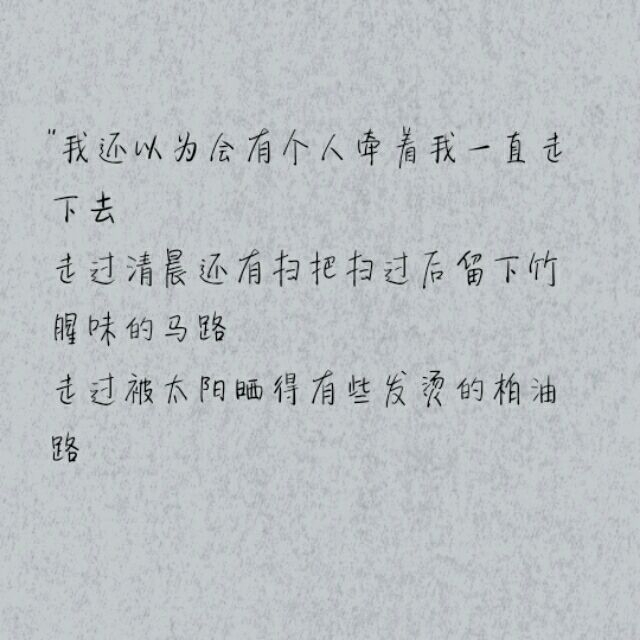 "我还以为会有个人牵着我一直走
下去
走过清晨还有扫把扫过后留下竹
腥味的马路
走过被太阳晒得有些发烫的柏油
路